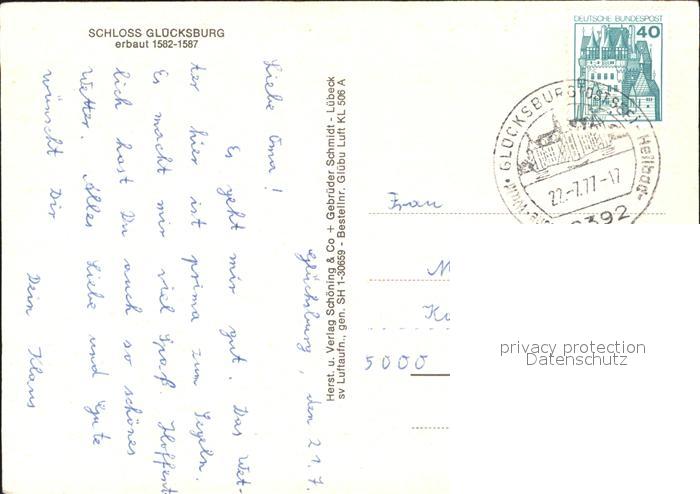 SCHLOSS GLÜCKSBURG
erbaut 1582-1587
Glücksburg, den 21.7.
Liebe Oma!
Es geht mir gut. Das Wet-
ter hier ist prima zum Segeln.
Es macht mir viel Spaß. Hoffent
lich hast Du auch so schönes
Wetter. Alles Liebe und Gute
wünscht Dir
Dein Klaus
Herst. u. Verlag Schöning & Co + Gebrüder Schmidt - Lübeck
sv Luftaufn., gen. SH 1-30659 - Bestellnr. Glübu Luft KL 506 A
DEUTSCHE BUNDESPOST
40
GLÜCKSBURG OSTSEE Heilbad
22.-7.77-17
2392
Frau
M
5000
privacy protection
Datenschutz